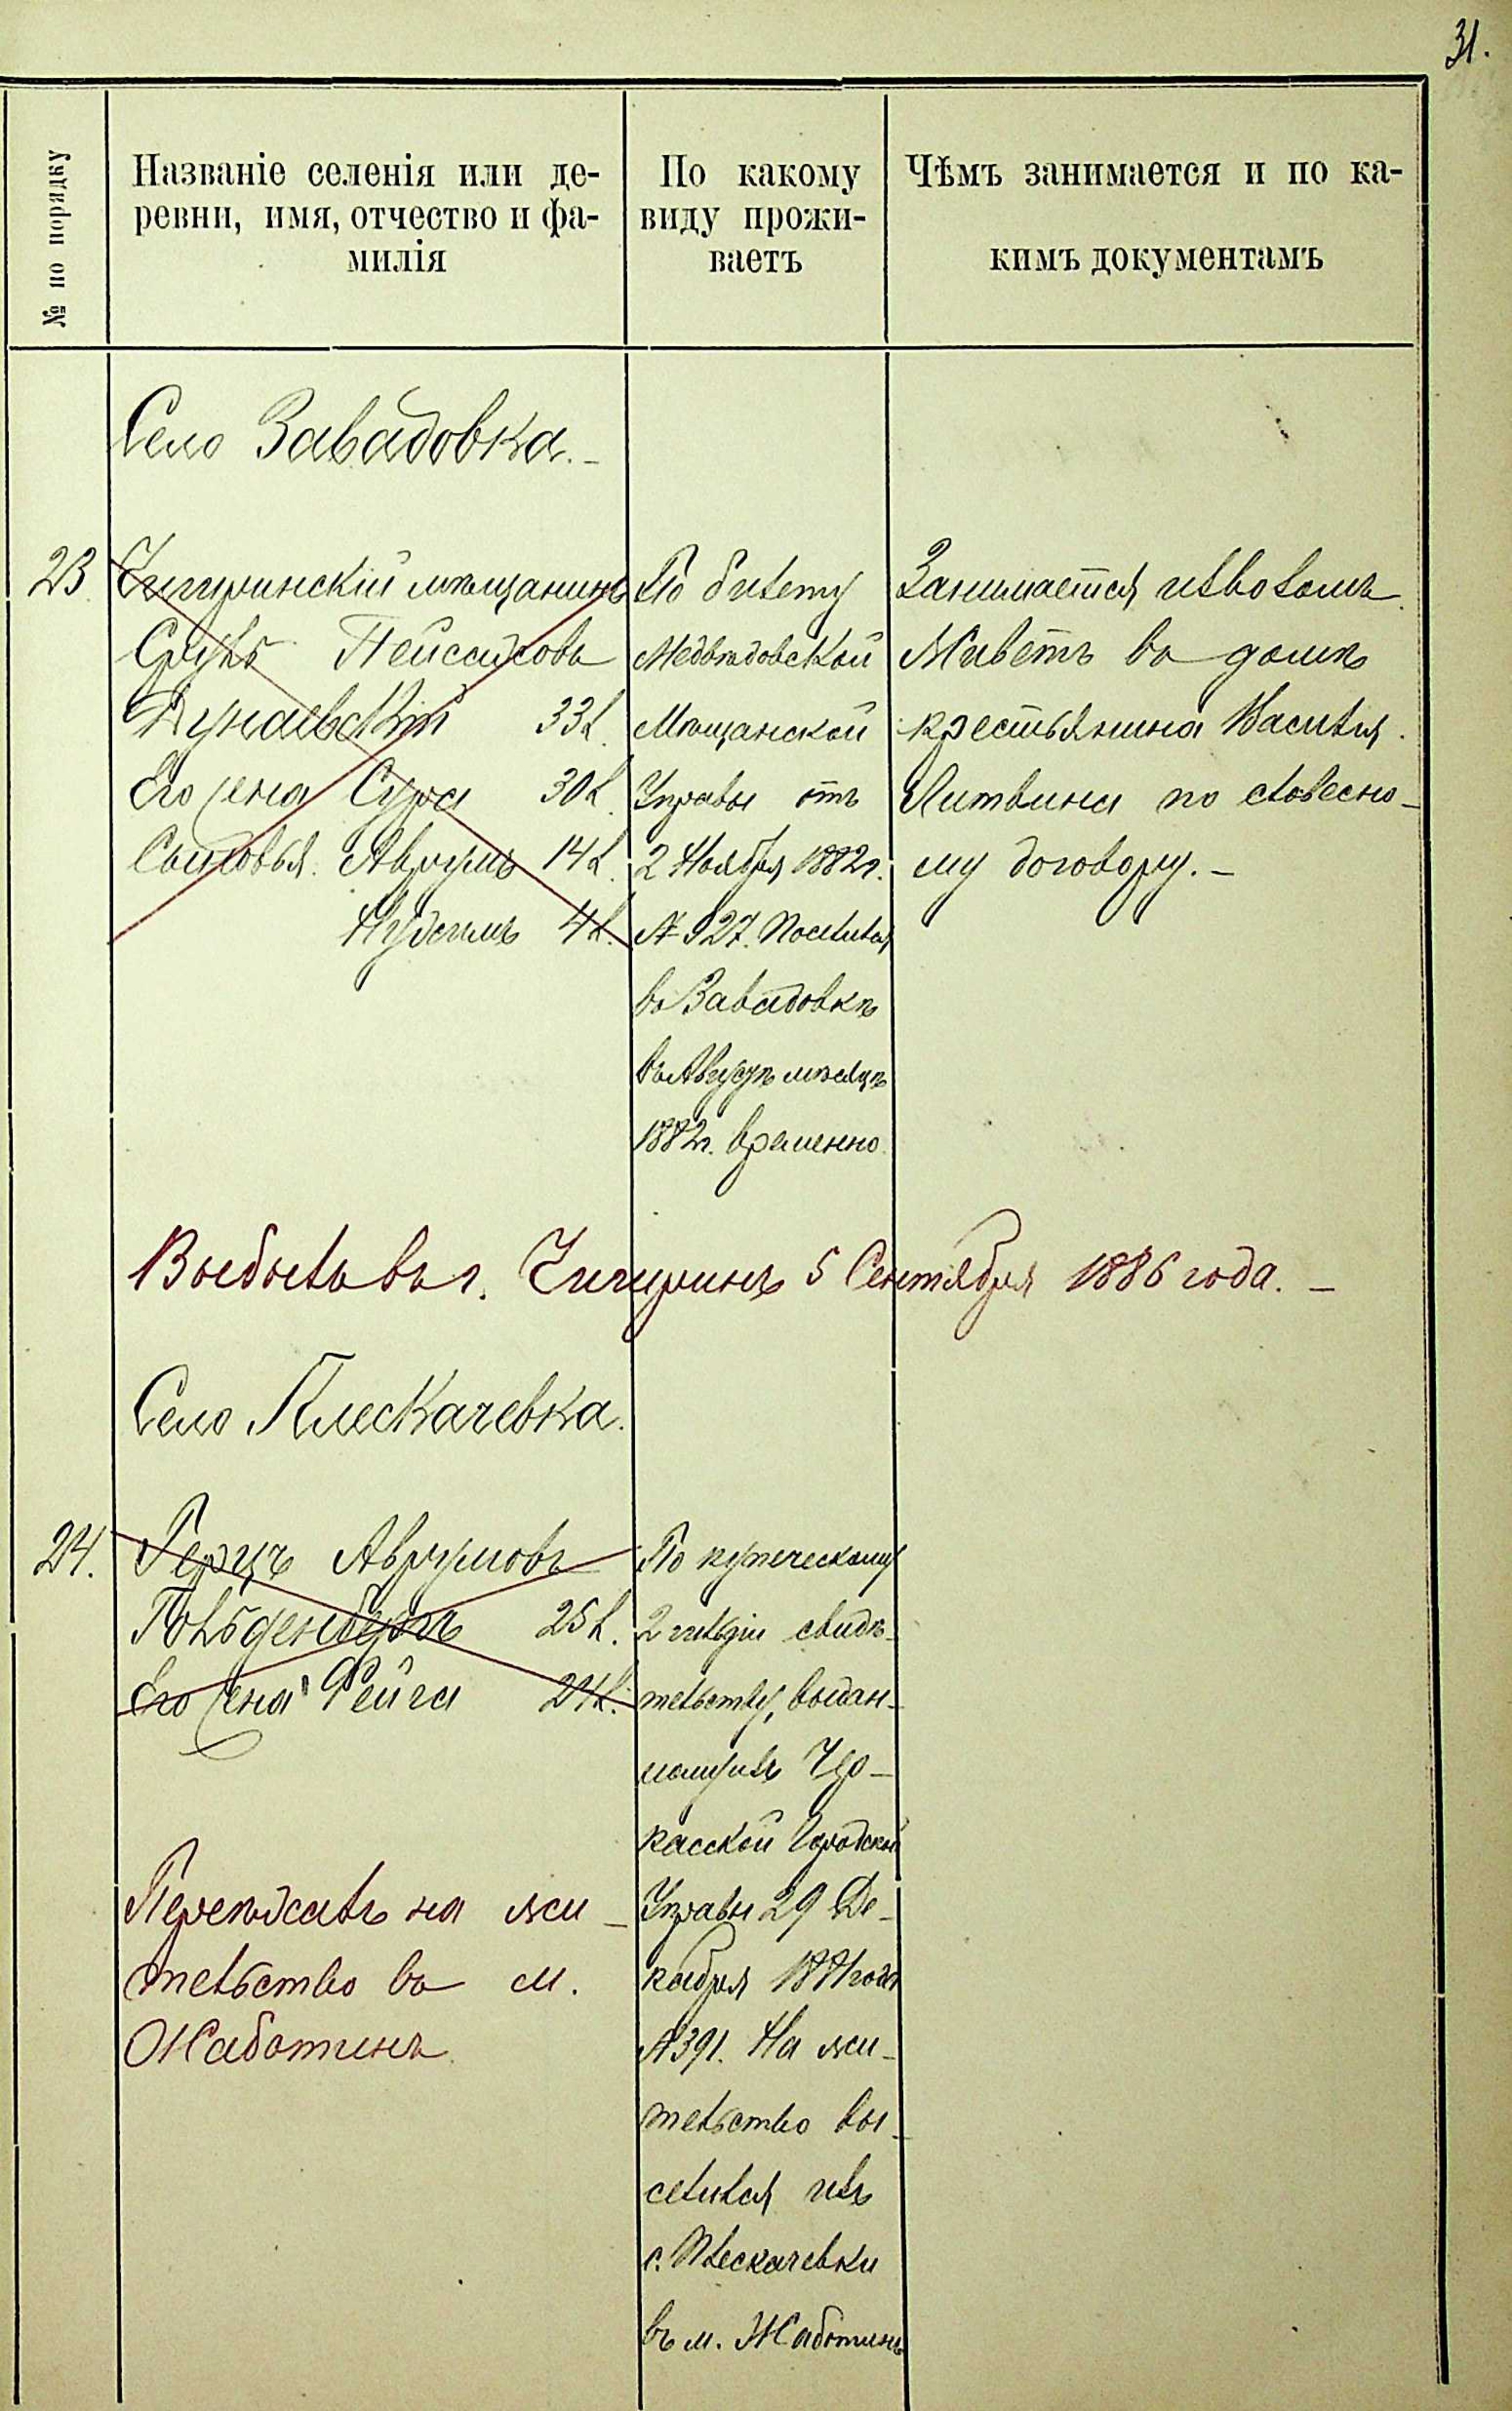 31.
№ по порядку
Названіе селенія или де-
ревни, имя, отчество и фа-
милія
По какому
виду прожи-
ваетъ
Чѣмъ занимается и по ка-
кимъ документамъ
Село Завадовка.-
23
Чигиринскій мѣщанинъ
Сруль Пейсаховъ
Дунаевскій 33 л.
Его жена Сура 30 л.
Сыновья. Аврумъ 14 л.
4 л.
По билету
Медвѣдовской
Мѣщанской
Управы отъ
2 Ноября 1882 г.
№ 927. Поселился
въ Завадовкѣ
въ Августѣ мѣсяцѣ
1882 г. временно
Занимается извозомъ
Живетъ въ домѣ
крестьянина Василія
Литвина по словесно-
му договору.-
Выбылъ въ г. Чигиринъ 5 Сентября 1886 года.-
Село Плескачевка.
24.
Герцъ Аврумовъ
Гольденбергъ 25 л.
Его жена Фейга 24 л.
По купеческому
2 гильдіи свидѣ-
тельству, выдан-
ному изъ Чер-
касской Городской
Управы 29 Де-
кабря 1881 года
№ 391. На жи-
тельство вы-
селился изъ
с. Плескачевки
въ м. Жаботинъ
Переѣхалъ на жи-
тельство въ м.
Жаботинъ